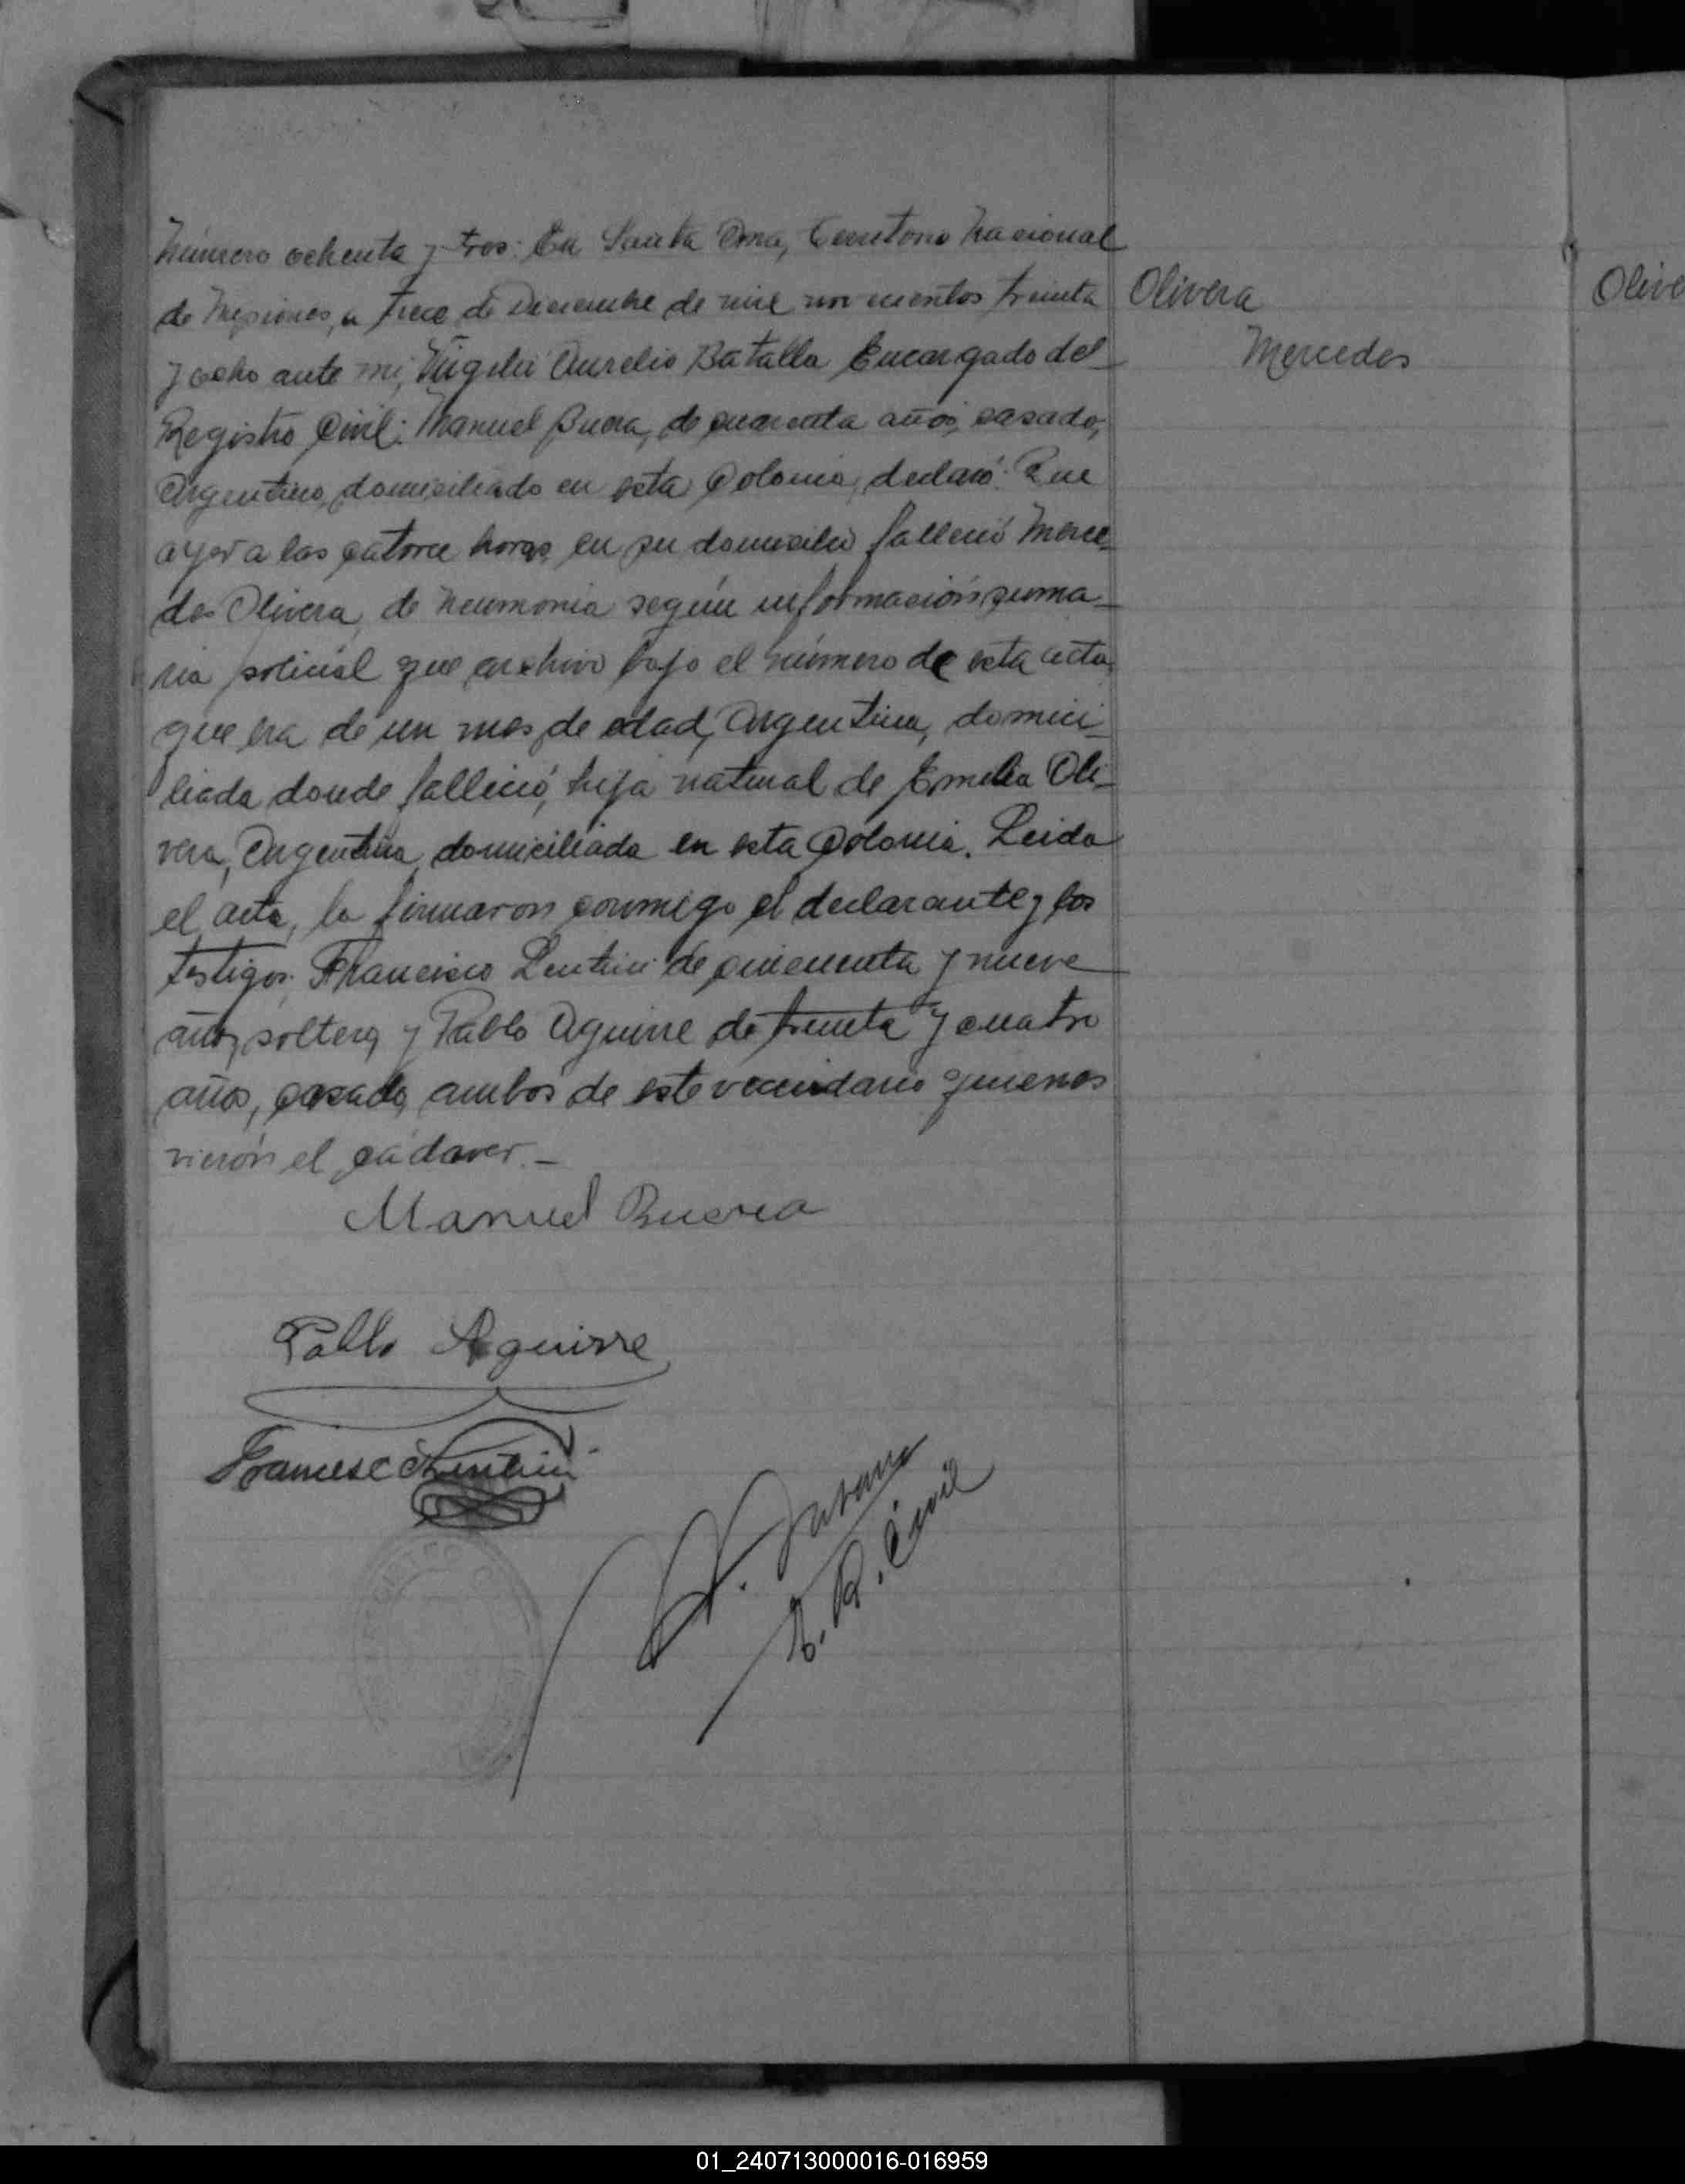 Número ochenta y tres: En Santa Ana, Territorio Nacional
de Misiones, a trece de Diciembre de mil novecientos treinta
y ocho ante mi, Virgilio Aurelio Batalla Encargado del
Registro Civil: Manuel de cuarenta años, casado,
Argentino, domiciliado en esta Colonia, declaró: Que
ayer a las catorce horas, en su domicilio falleció Merce-
des Olivera, de neumonia según información suma-
ria policial que archivo bajo el número de esta acta,
que era de un mes de edad, Argentina, domici-
liada donde falleció, hija natural de Emilia Oli-
vera, Argentina, domiciliada en esta Colonia. Leida
el acta, la firmaron conmigo el declarante y los
testigos: Francisco Lentini de cincuenta y nueve
años, soltero, y Pablo Aguirre de treinta y cuatro
años, casado, ambos de este vecindario quienes
vierón el cádaver.-
Manuel
Pablo Aguirre
Francisco Lentini
E. R. Civil
Olivera
Mercedes
Olive
01_240713000016-016959